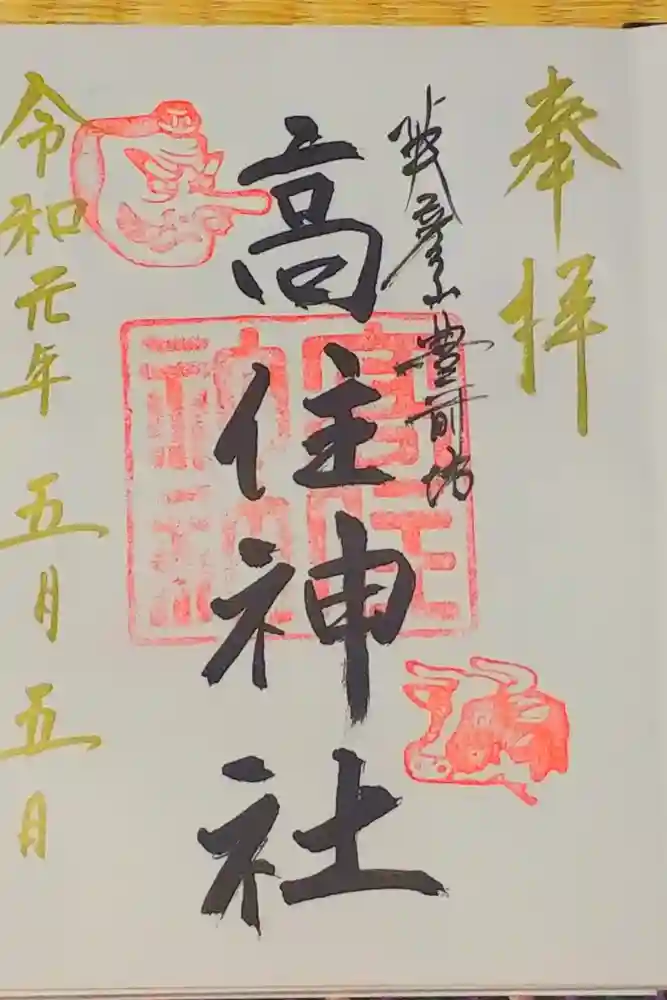 奉拝
英彦山豊前坊
高住神社
令和元年五月五日